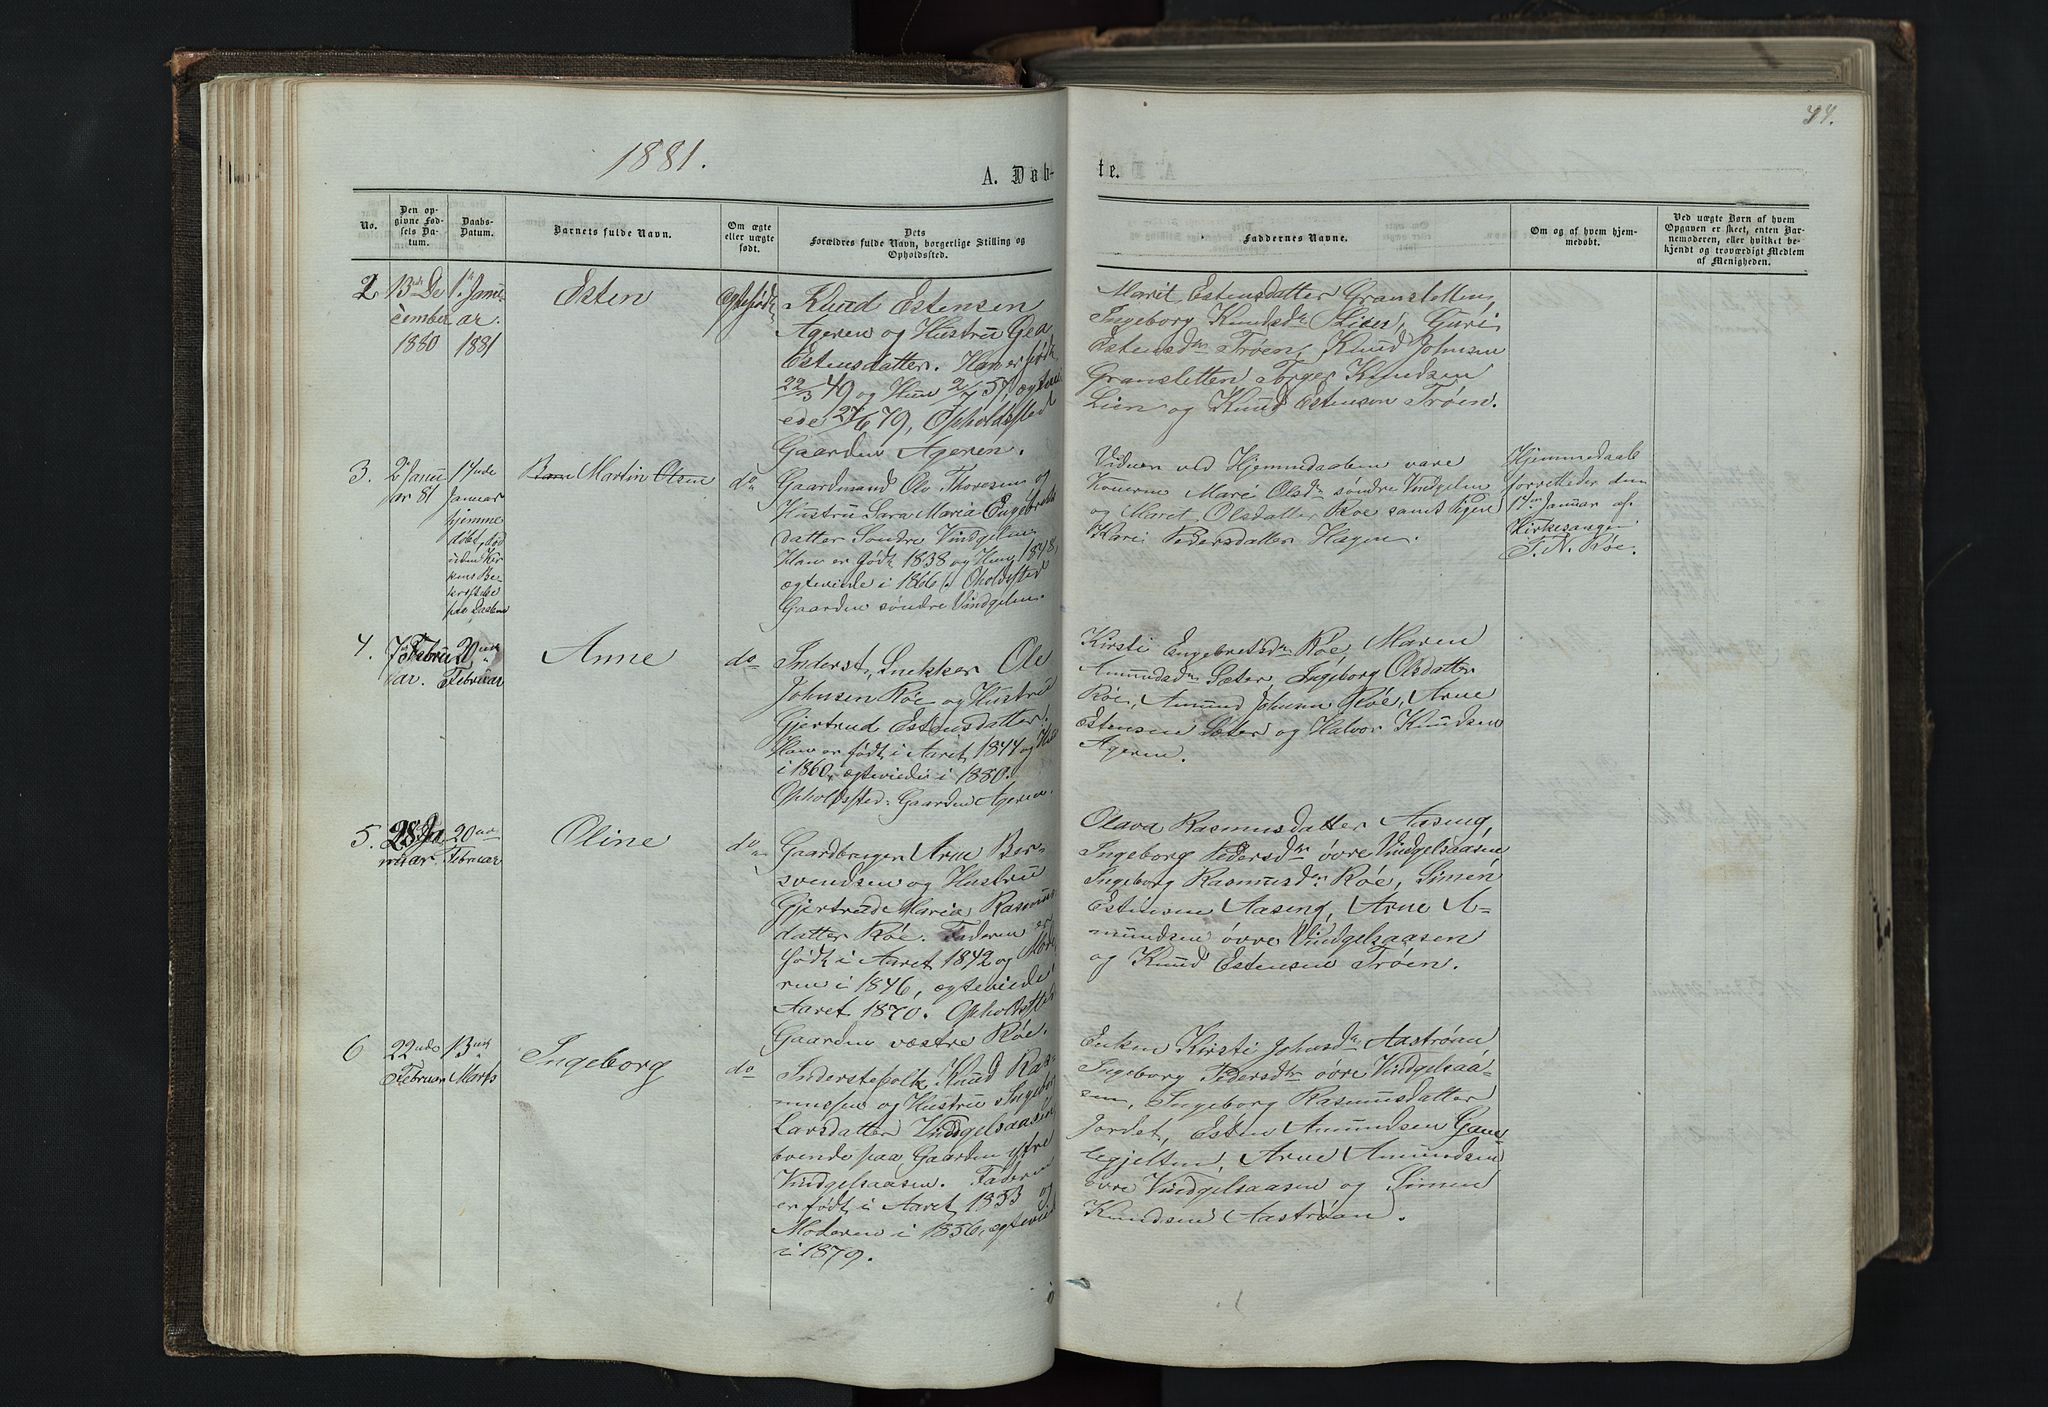 44.
1881.
A. Døb-
te.
No.
Den op-
givne Fød-
sels Da-
tum.
Daabs-
Datum.
Barnets fulde Navn.
Om ægte
eller uægte
født.
Dets
Forældres fulde Navn, borgerlige Stilling og
Opholdssted.
Faddernes Navne.
Om og af hvem hjem-
medøbt.
Ved uægte Børn af hvem
Opgaven er skeet, enten Bar-
nemoderen, eller hvilket be-
kjendt og troværdigt Medlem
af Menigheden.
2.
13de De
cember
1880
1ste Janu-
ar.
1881
Esten
Ægtefødt
Knud Estensen
Ageren og Hustru Gea
Estensdatter. Han er født
22/3 49 og Hun 2/7 57, ægtevi
ede 27/6 79, Opholdssted
Gaarden Ageren.
Marit Estensdatter Gransletten,
Ingeborg Knudsdr Lien, Guri
Estensdr Trøen, Knud Johnsen
Gransletten Torger Knudsen
Lien og Knud Estensen Trøen.
3.
2den Janu
ar 81
14nde
Januar
hjemme
døbt, død
uden Kir
kens Be-
kræftelse
paa Daaben
Barn Martin Olsen
do
Gaardmand Ole Thoresen og
Hustru Sara Maria Engebrets
datter Søndre Vindgelen.
Han er født 1838 og Hun 1848,
ægteviede i 1866. Opholdssted
Gaarden søndre Vindgelen.
Vidner ved Hjemmedaaben vare
Konerne Mari Olsdr søndre Vindgelen
og Maret Olsdatter Røe samt Pigen
Kari Pedersdatter Hagen.
Hjemmedaab
forrettedes den
14de Januar af
Kirkesanger
T. N. Røe.
4.
7de Febru
ar.
20nde
Februar
Anne
do
Inderst, Snekker Ole
Johnsen Røe og Hustru
Gjertrud Estensdatter.
Han er født i Aaret 1844 og Hun
i 1860, ægteviede i 1880.
Opholdssted: Gaarden Ageren.
Kirsti Engebretsdr Røe, Maren
Amundsdr Sæter, Ingeborg Olsdatter
Røe, Amund Johnsen Røe, Arne
Estensen Sæter og Halvor Knudsen
Ageren.
5.
28 Ja
nuar
20nde
Februar
Oline
do
Gaardbruger Arne Ber-
svendsen og Hustru
Gjertrude Maria Rasmus-
datter Røe. Faderen er
født i Aaret 1842 og Mode
ren i 1846, ægteviede i
Aaret 1870. Opholdssted
Gaarden væstre Røe.
Olava Rasmusdatter Aasing,
Ingeborg Pedersdr øvre Vindgelsaasen
Ingeborg Rasmusdr Røe, Simen
Estensen Aasing, Arne A-
mundsen øvre Vindgelsaasen
og Knud Estensen Trøen.
6
22nde
Februar
13nde
Marts
Ingeborg
do
Inderstefolk Knud Ras-
mussen og Hustru Ingeborg
Larsdatter Vindgelsaasen
boende paa Gaarden øvre
Vindgelsaasen. Faderen
er født i Aaret 1853 og
Moderen i 1856, ægteviede
i 1879.
Enken Kirsti Johnsdr Aastrøan
Ingeborg Pedersdtr øvre Vindgelsaa-
sen, Ingeborg Rasmusdatter
Jordet, Esten Amundsen Gam-
melgjelten, Arne Amundsen
øvre Vindgelsaasen og Simen
Knudsen Aastrøan.